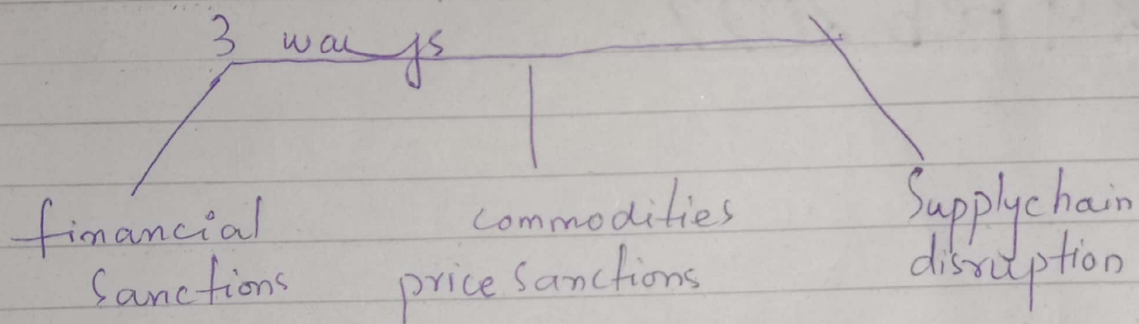 3 ways
financial
sanctions
commodities
price sanctions
Supplychain
disruption